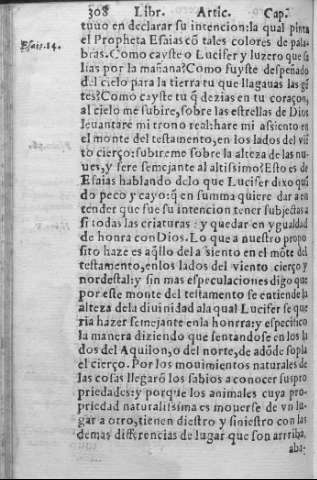 308 Libr. Artic. Cap.
tuuo en declarar su intencion: la qual pinta
Esai. 14.
el Propheta Esaias cõ tales colores de pala-
bras. Como cayste o Lucifer y luzero que sa
lias por la mañana? Como fuyste despeñado
del cielo para la tierra tu que llagauas las gẽ
tes? Como cayste tu q̃ dezias en tu coraçon,
al cielo me subire, sobre las estrellas de Dios
leuantare mi trono real: hare mi assiento en
el monte del testamento, en los lados del viẽ
to cierço: subireme sobre la alteza de las nu-
ues, y sere semejante al altissimo? Esto es de
Esaias hablando dclo que Lucifer dixo quã
do peco y cayo: q̃ en summa quiere dar a en
tender que fue su intencion tener subjectas a
si todas las criaturas: y quedar en ygualdad
de honra con Dios. Lo que a nuestro propo
sito haze es aq̃llo del assiento en el mõte del
testamento, en los lados del viento cierço y
nordestal: y sin mas especulaciones digo que
por este monte del testamento se entiende la
alteza dela diuinidad ala qual Lucifer se que
ria hazer semejante en la honrra: y especifico
la manera diziendo que sentandose en los la
dos del Aquilon, o del norte, de adõde sopla
el cierço. Por los mouimientos naturales de
las cosas llegarõ los sabios a conocer sus pro
priedades: y porque los animales cuya pro-
priedad naturalissima es mouerse de vn lu-
gar a otro, tienen diestro y siniestro con las
demas differencias de lugar que son arriba,
aba-